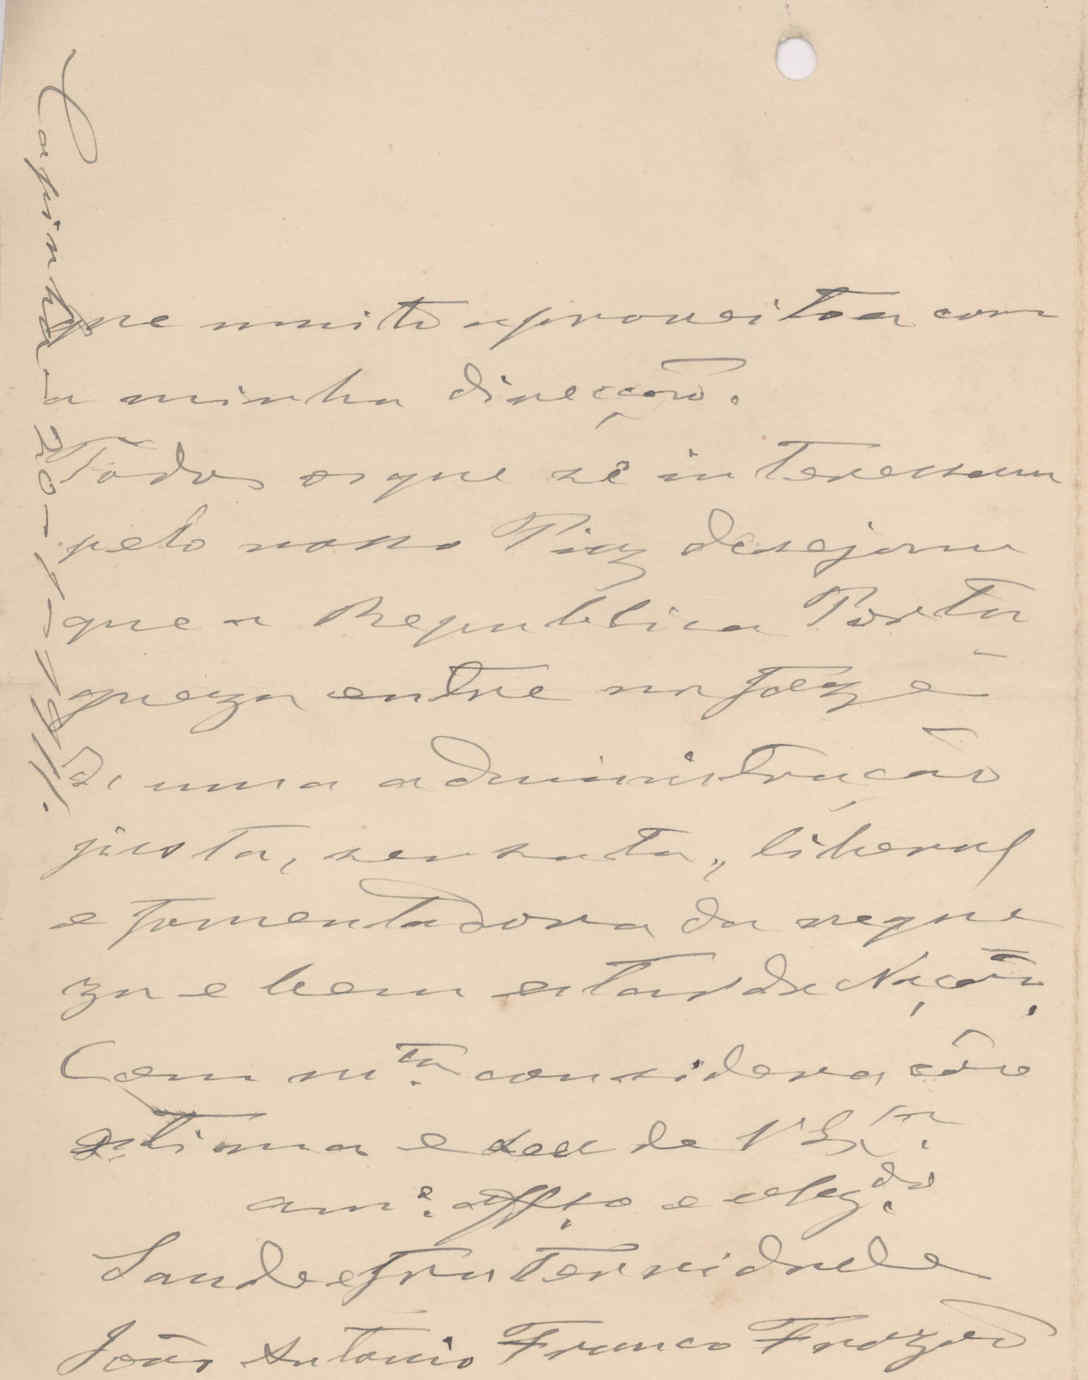 que muito aproveitoa com
a minha direcção.
Todos os que se interessam
pelo nosso Piaz desejam
que a Republica Portu
gueza entre na faze
de uma administração
justa, sensata, liberal
e fomentadora da reque
za e bem estar da Nação.
Com m.ta consideração
estima e sou de V. Ex.ma
am.º aff.to e obgdo
Saude e fraternidade
João Antonio Franco Frazão
Capinha 20-1-1911.